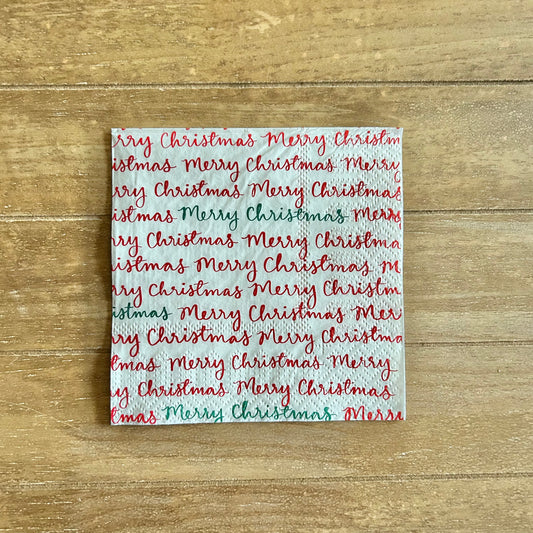 rry Christmas Merry Christm
istmas Merry Christmas Merry
rry Christmas Merry Christmas
Merry Christmas Merry
rry Christmas Merry Christmas
hristmas Merry Christmas M
rry Christmas Merry Christm
istmas Merry Christmas Merr
rry Christmas Merry Christmas
tmas Merry Christmas Merry
ry Christmas Merry Christmas
tmas Merry Christmas Merry